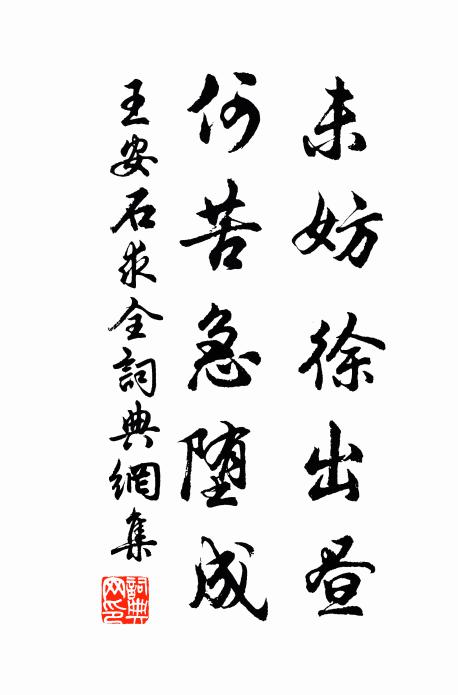 未妨徐出昼
何苦急堕成
王安石求全詞典網集
詞典
网印